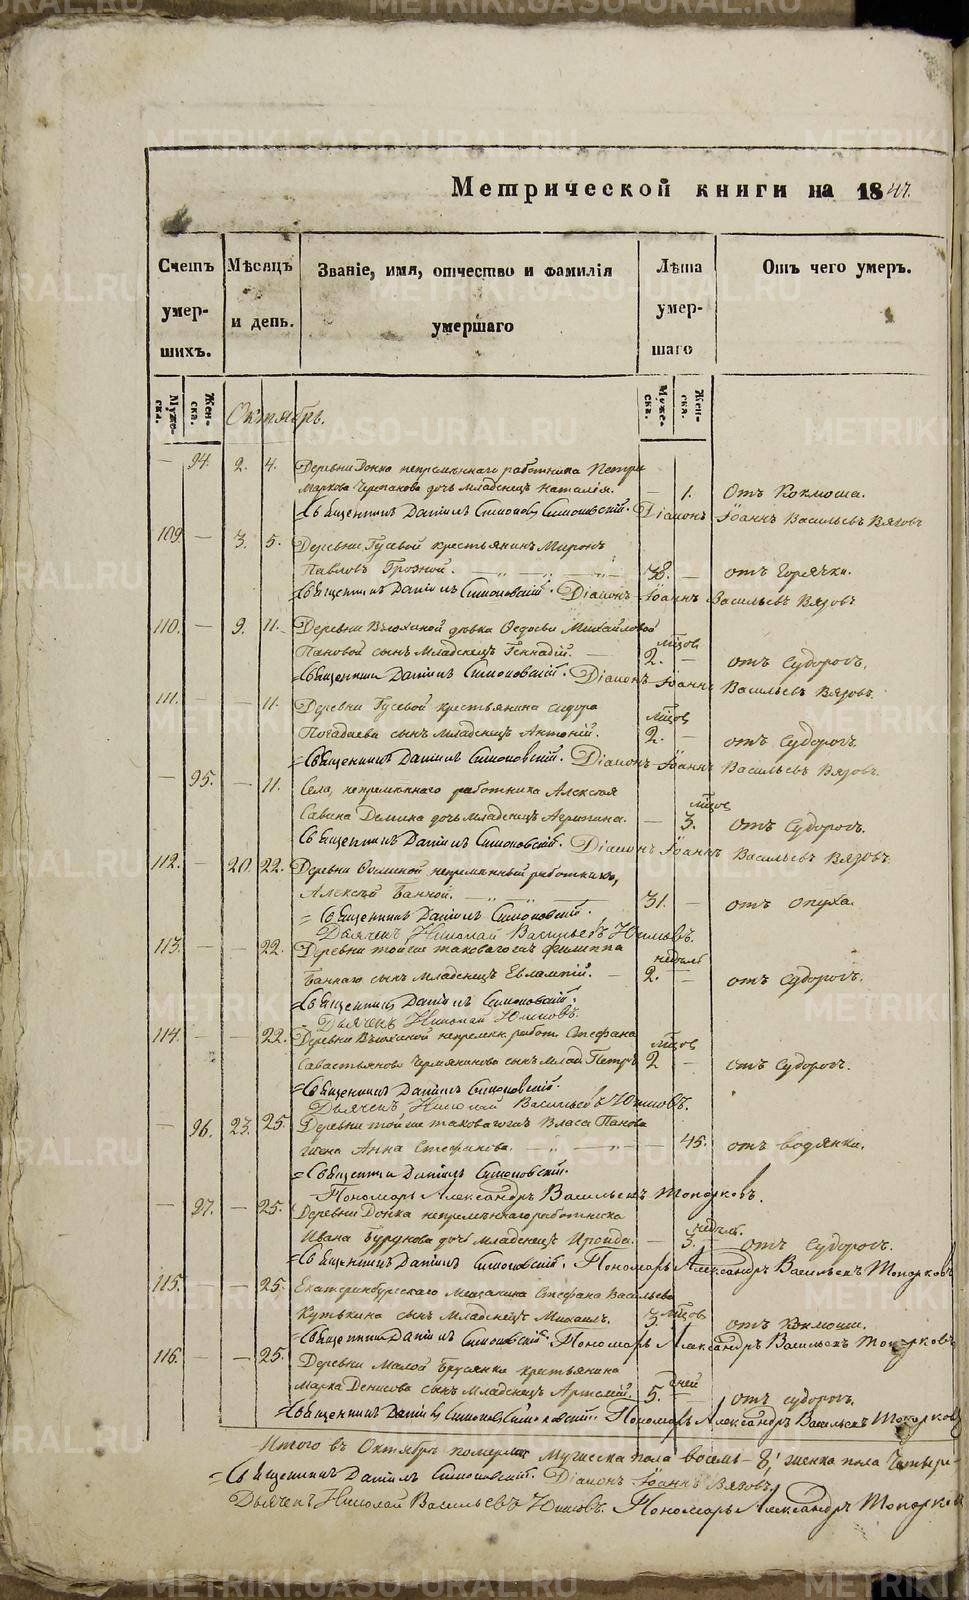 METRIKI.GASO-URAL.RU
Метрической книги на 1847.
Счетъ умер-шихъ.
Мѣсяцъ и день.
Званіе, имя, отчество и фамилія умершаго
Лѣта умер-шаго
Отъ чего умеръ.
Муже-ска. Жен-ска.
Муже-ска. Жен-ска.
Октябрь.
— 94. 2. 4. Деревни непремѣннаго работника Петра
Маркова Черепанова дочь младенецъ Наталія. — 1. Отъ Кокмоша.
Священникъ Даніилъ Симоновскій. Діаконъ Іоаннъ Васильевъ Вязовъ
109. — 3. 5. Деревни Гусевой крестьянинъ Миронъ
Павловъ Грозной. 38. — отъ горячки.
Священникъ Даніилъ Симоновскій. Діаконъ Іоаннъ Васильевъ Вязовъ
110. — 9. 11. Деревни дѣвка Ѳедосьи Михайловой
Пановой сынъ младенецъ Геннадій. — 2. мѣсяцов — отъ судорогъ.
Священникъ Даніилъ Симоновскій. Діаконъ Іоаннъ Васильевъ Вязовъ.
111. — — 11. Деревни Гусевой крестьянина Сидора
сынъ младенецъ Антоній. 2. мѣсяцов — отъ судорогъ
Священникъ Даніилъ Симоновскій. Діаконъ Іоаннъ Васильевъ Вязовъ.
— 95. — 11. Села, непремѣннаго работника Алексѣя
Савина Демина дочь младенецъ Агрипина. — 3. мѣсяцов отъ судорогъ.
Священникъ Даніилъ Симоновскій. Діаконъ Іоаннъ Васильевъ Вязовъ.
112. — 20. 22. Деревни непремѣнный работникъ,
Алексѣй Банной. 31. — отъ опуха.
Священникъ Даніилъ Симоновскій.
Дьячекъ Николай Васильевъ
113. — — 22. Деревни той же таковаго жъ Филиппа
Баннаго сынъ младенецъ Евлампій. — 2. недѣль — отъ судорогъ.
Священникъ Даніилъ Симоновскій.
Дьячекъ Николай
114. — — 22. Деревни непремѣн. работ. Стефана
Савастьянова сынъ млад. Петръ 2 мѣсяцов — отъ судорогъ.
Священникъ Даніилъ Симоновскій.
Дьячекъ Николай Васильевъ
— 96. 23. 25. Деревни той же таковаго жъ Власа Панова
жена Анна Стефанова. — 45. отъ водянки.
Священникъ Даніилъ Симоновскій.
Пономарь Александръ Васильевъ Топорковъ.
— 97. — 25. Деревни непремѣннаго работника
Ивана Бурдукова дочь младенецъ Ираида. — 3. недѣль. отъ судорогъ.
Священникъ Даніилъ Симоновскій. Пономарь Александръ Васильевъ Топорковъ
115. — — 25. Екатеринбургскаго мѣщанина Стефана Васильева
Кутькина сынъ младенецъ Михаилъ. 3. мѣсяцов отъ Кокмоши.
Священникъ Даніилъ Симоновскій. Пономарь Александръ Васильевъ Топорковъ
116. — — 25. Деревни Малой Брусянки крестьянина
Марка Денисова сынъ младенецъ Артемій. 5. дней — отъ судорогъ.
Священникъ Даніилъ Симоновскій. Пономарь Александръ Васильевъ Топорковъ
Итого въ Октябрѣ померло мужеска пола восемь – 8, женска пола четыре –
Священникъ Даніилъ Симоновскій. Діаконъ Іоаннъ Вязовъ.
Дьячекъ Николай Васильевъ Пономарь Александръ Топорковъ